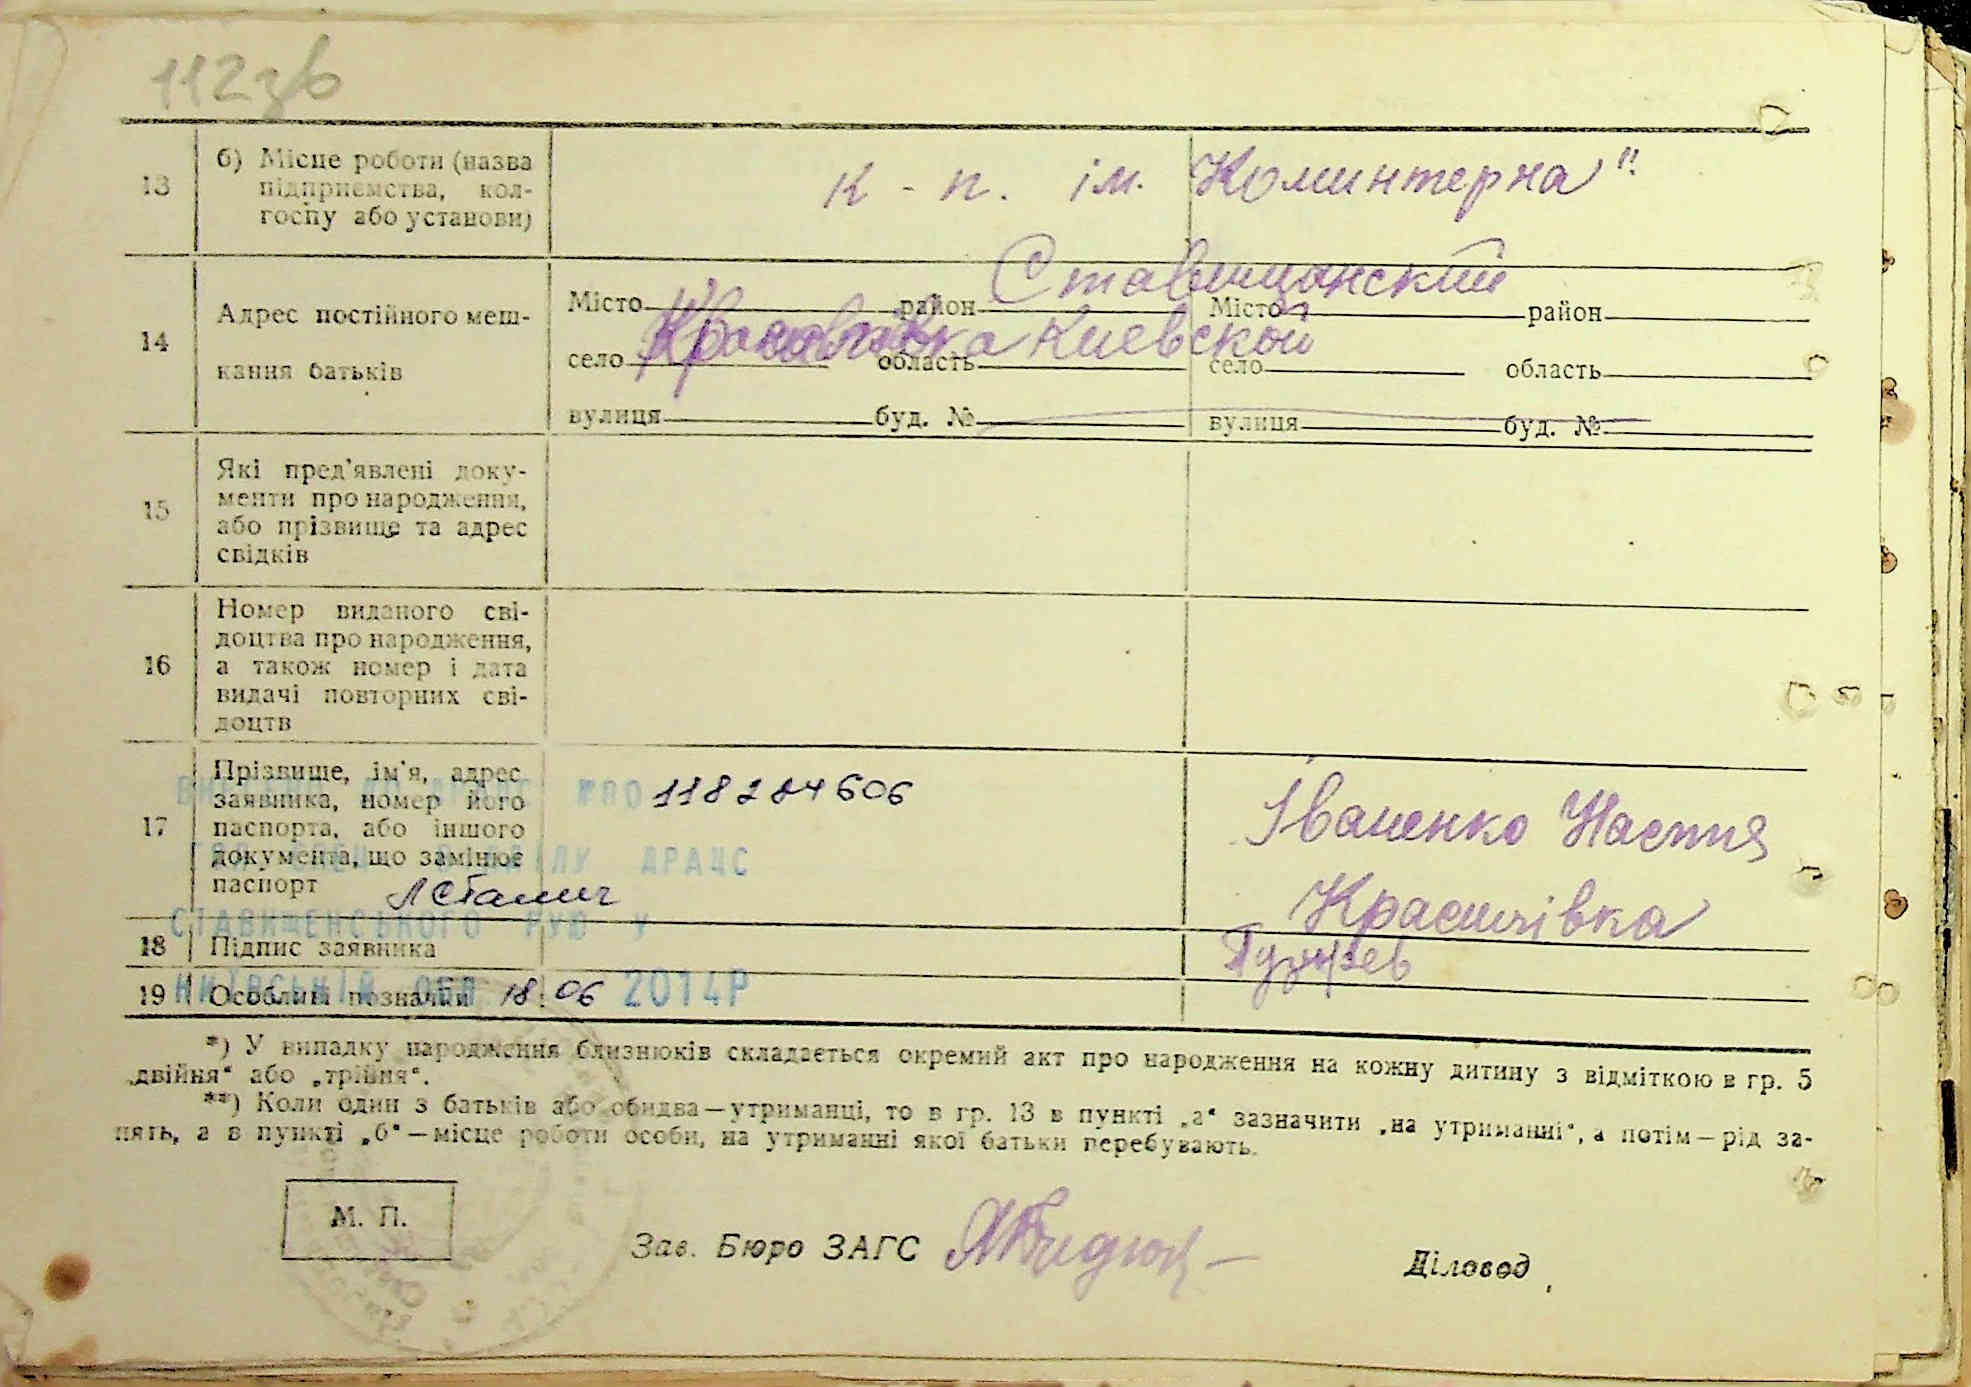 112зв
13 б) Місце роботи (назва
підприємства, кол-
госпу або установи)
к-п. ім. Коминтерна"
14 Адрес постійного меш-
кання батьків
Ставищанский
Місто район Місто район
Красилівка Киевской
село область село область
вулиця буд. № вулиця буд. №
15 Які пред'явлені доку-
менти про народження,
або прізвище та адрес
свідків
16 Номер виданого сві-
доцтва про народження,
а також номер і дата
видачі повторних сві-
доцтв
17 Прізвище, ім'я, адрес
заявника, номер його
паспорта, або іншого
документа, що замінює
паспорт
118284606
Іваненко Настя
Красилівка
ВІДДІЛУ ДРАЦС
СТАВИЩЕНСЬКОГО РУЮ У
18 Підпис заявника
19 Особливі позначки
КИЇВСЬКІЙ ОБЛ 18.06 2014Р
*) У випадку народження близнюків складається окремий акт про народження на кожну дитину з відміткою в гр. 5
„двійня“ або „трійня“.
**) Коли один з батьків або обидва—утриманці, то в гр. 13 в пункті „а“ зазначити „на утриманні“, а потім—рід за-
нять, а в пункті „б“—місце роботи особи, на утриманні якої батьки перебувають.
М. П.
Зав. Бюро ЗАГС
Діловод